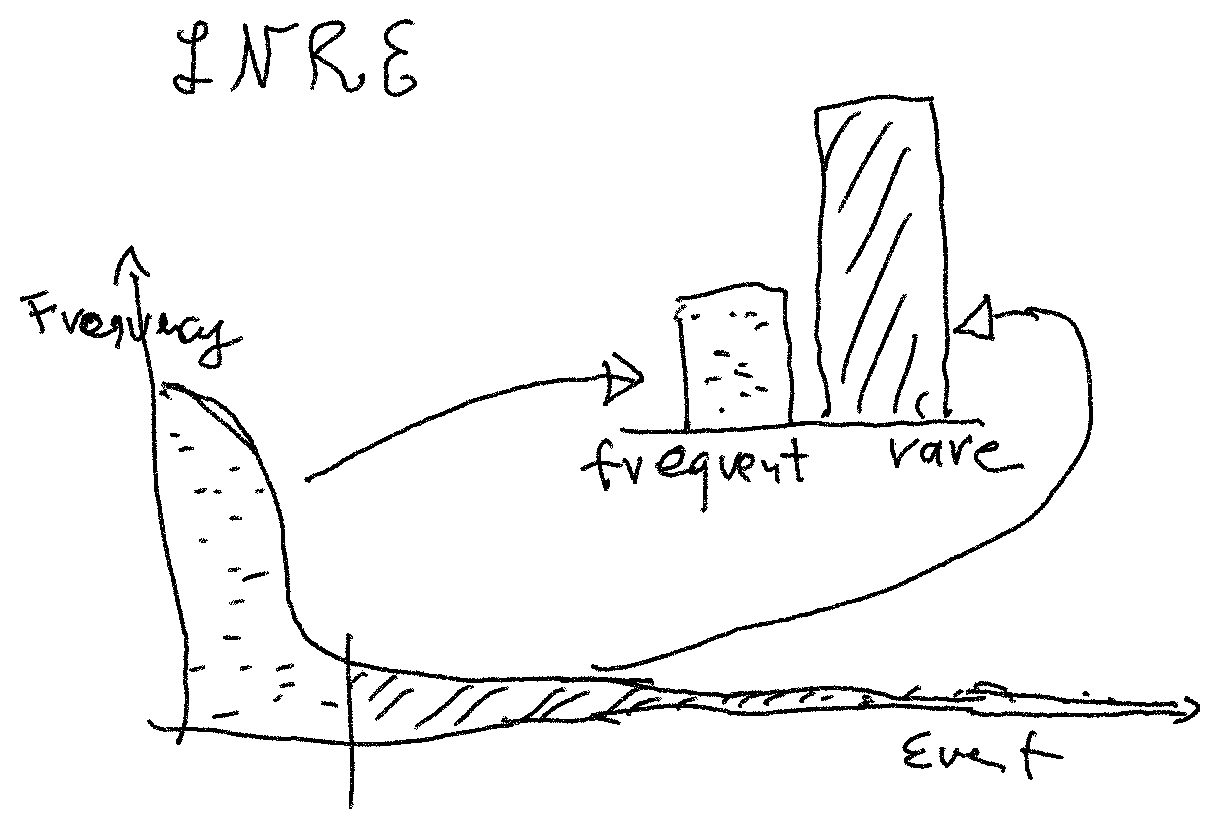 LNRE
Frequency
frequent
rare
Event